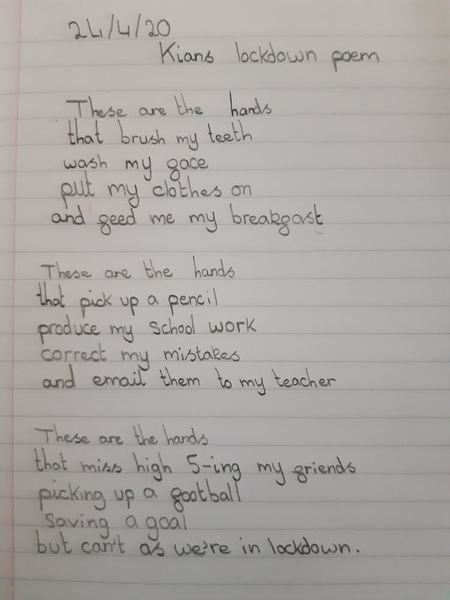 24/4/20
Kians lockdown poem
These are the hands
that brush my teeth
wash my face
put my clothes on
and feed me my breakfast
These are the hands
that pick up a pencil
produce my school work
correct my mistakes
and email them to my teacher
These are the hands
that miss high 5-ing my friends
picking up a football
saving a goal
but can't as we're in lockdown.